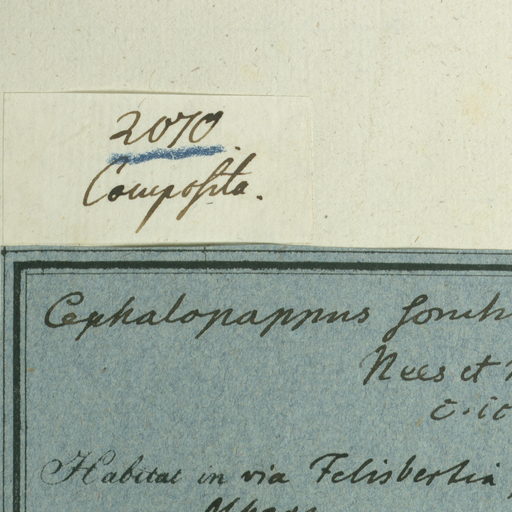 2070.
Composita.
Cephalopappus sonch
Nees et
c. ic
Habitat in via Felisbertia